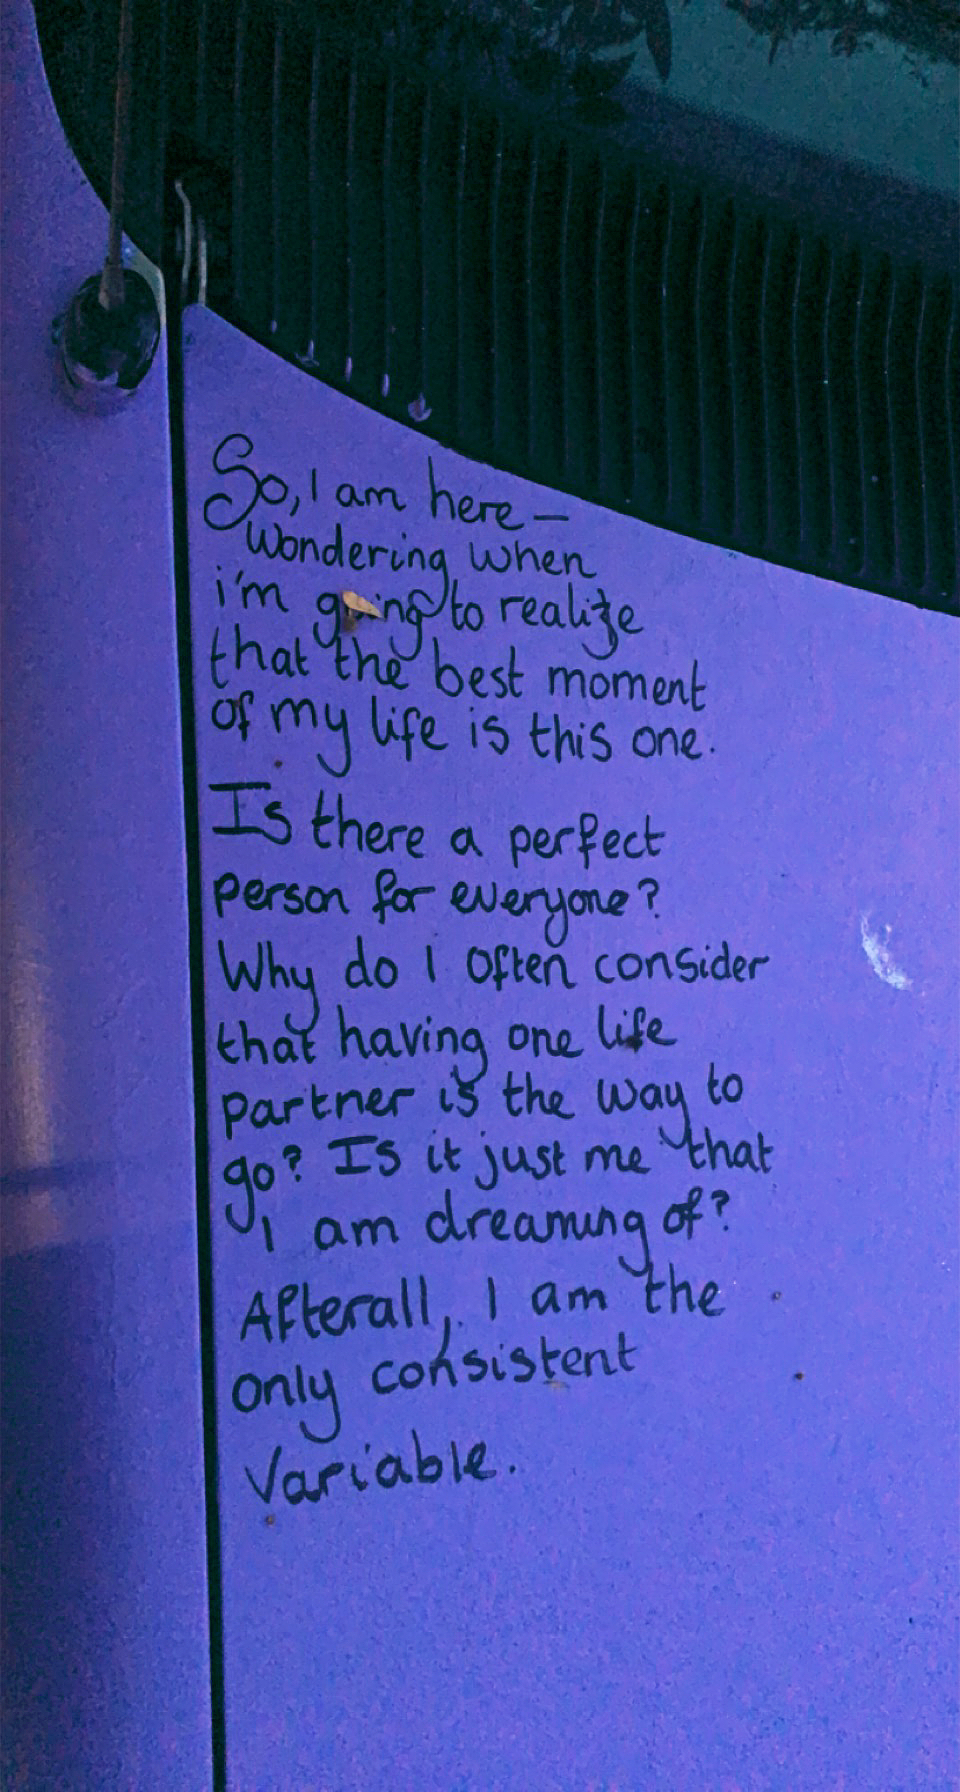 So, I am here –
Wondering when
i'm going to realize
that the best moment
of my life is this one.
Is there a perfect
person for everyone?
Why do I often consider
that having one life
partner is the way to
go? Is it just me that
I am dreaming of?
Afterall, I am the
only consistent
variable.